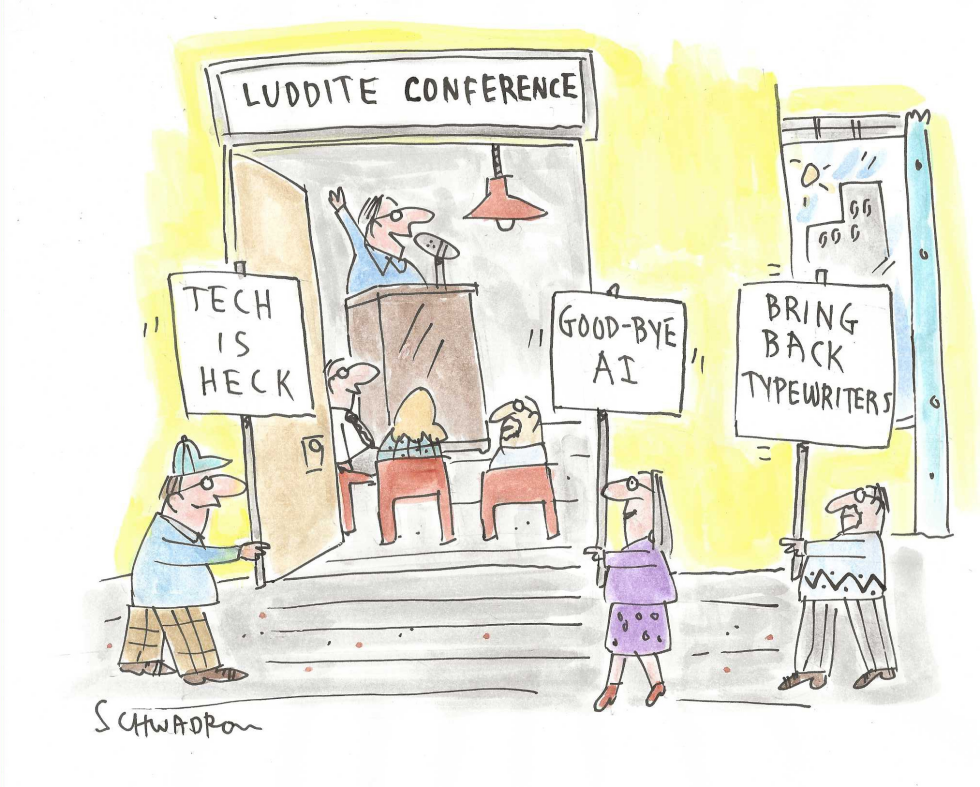 LUDDITE CONFERENCE
TECH
IS
HECK
GOOD-BYE
AI
BRING
BACK
TYPEWRITERS
SCHWADRON